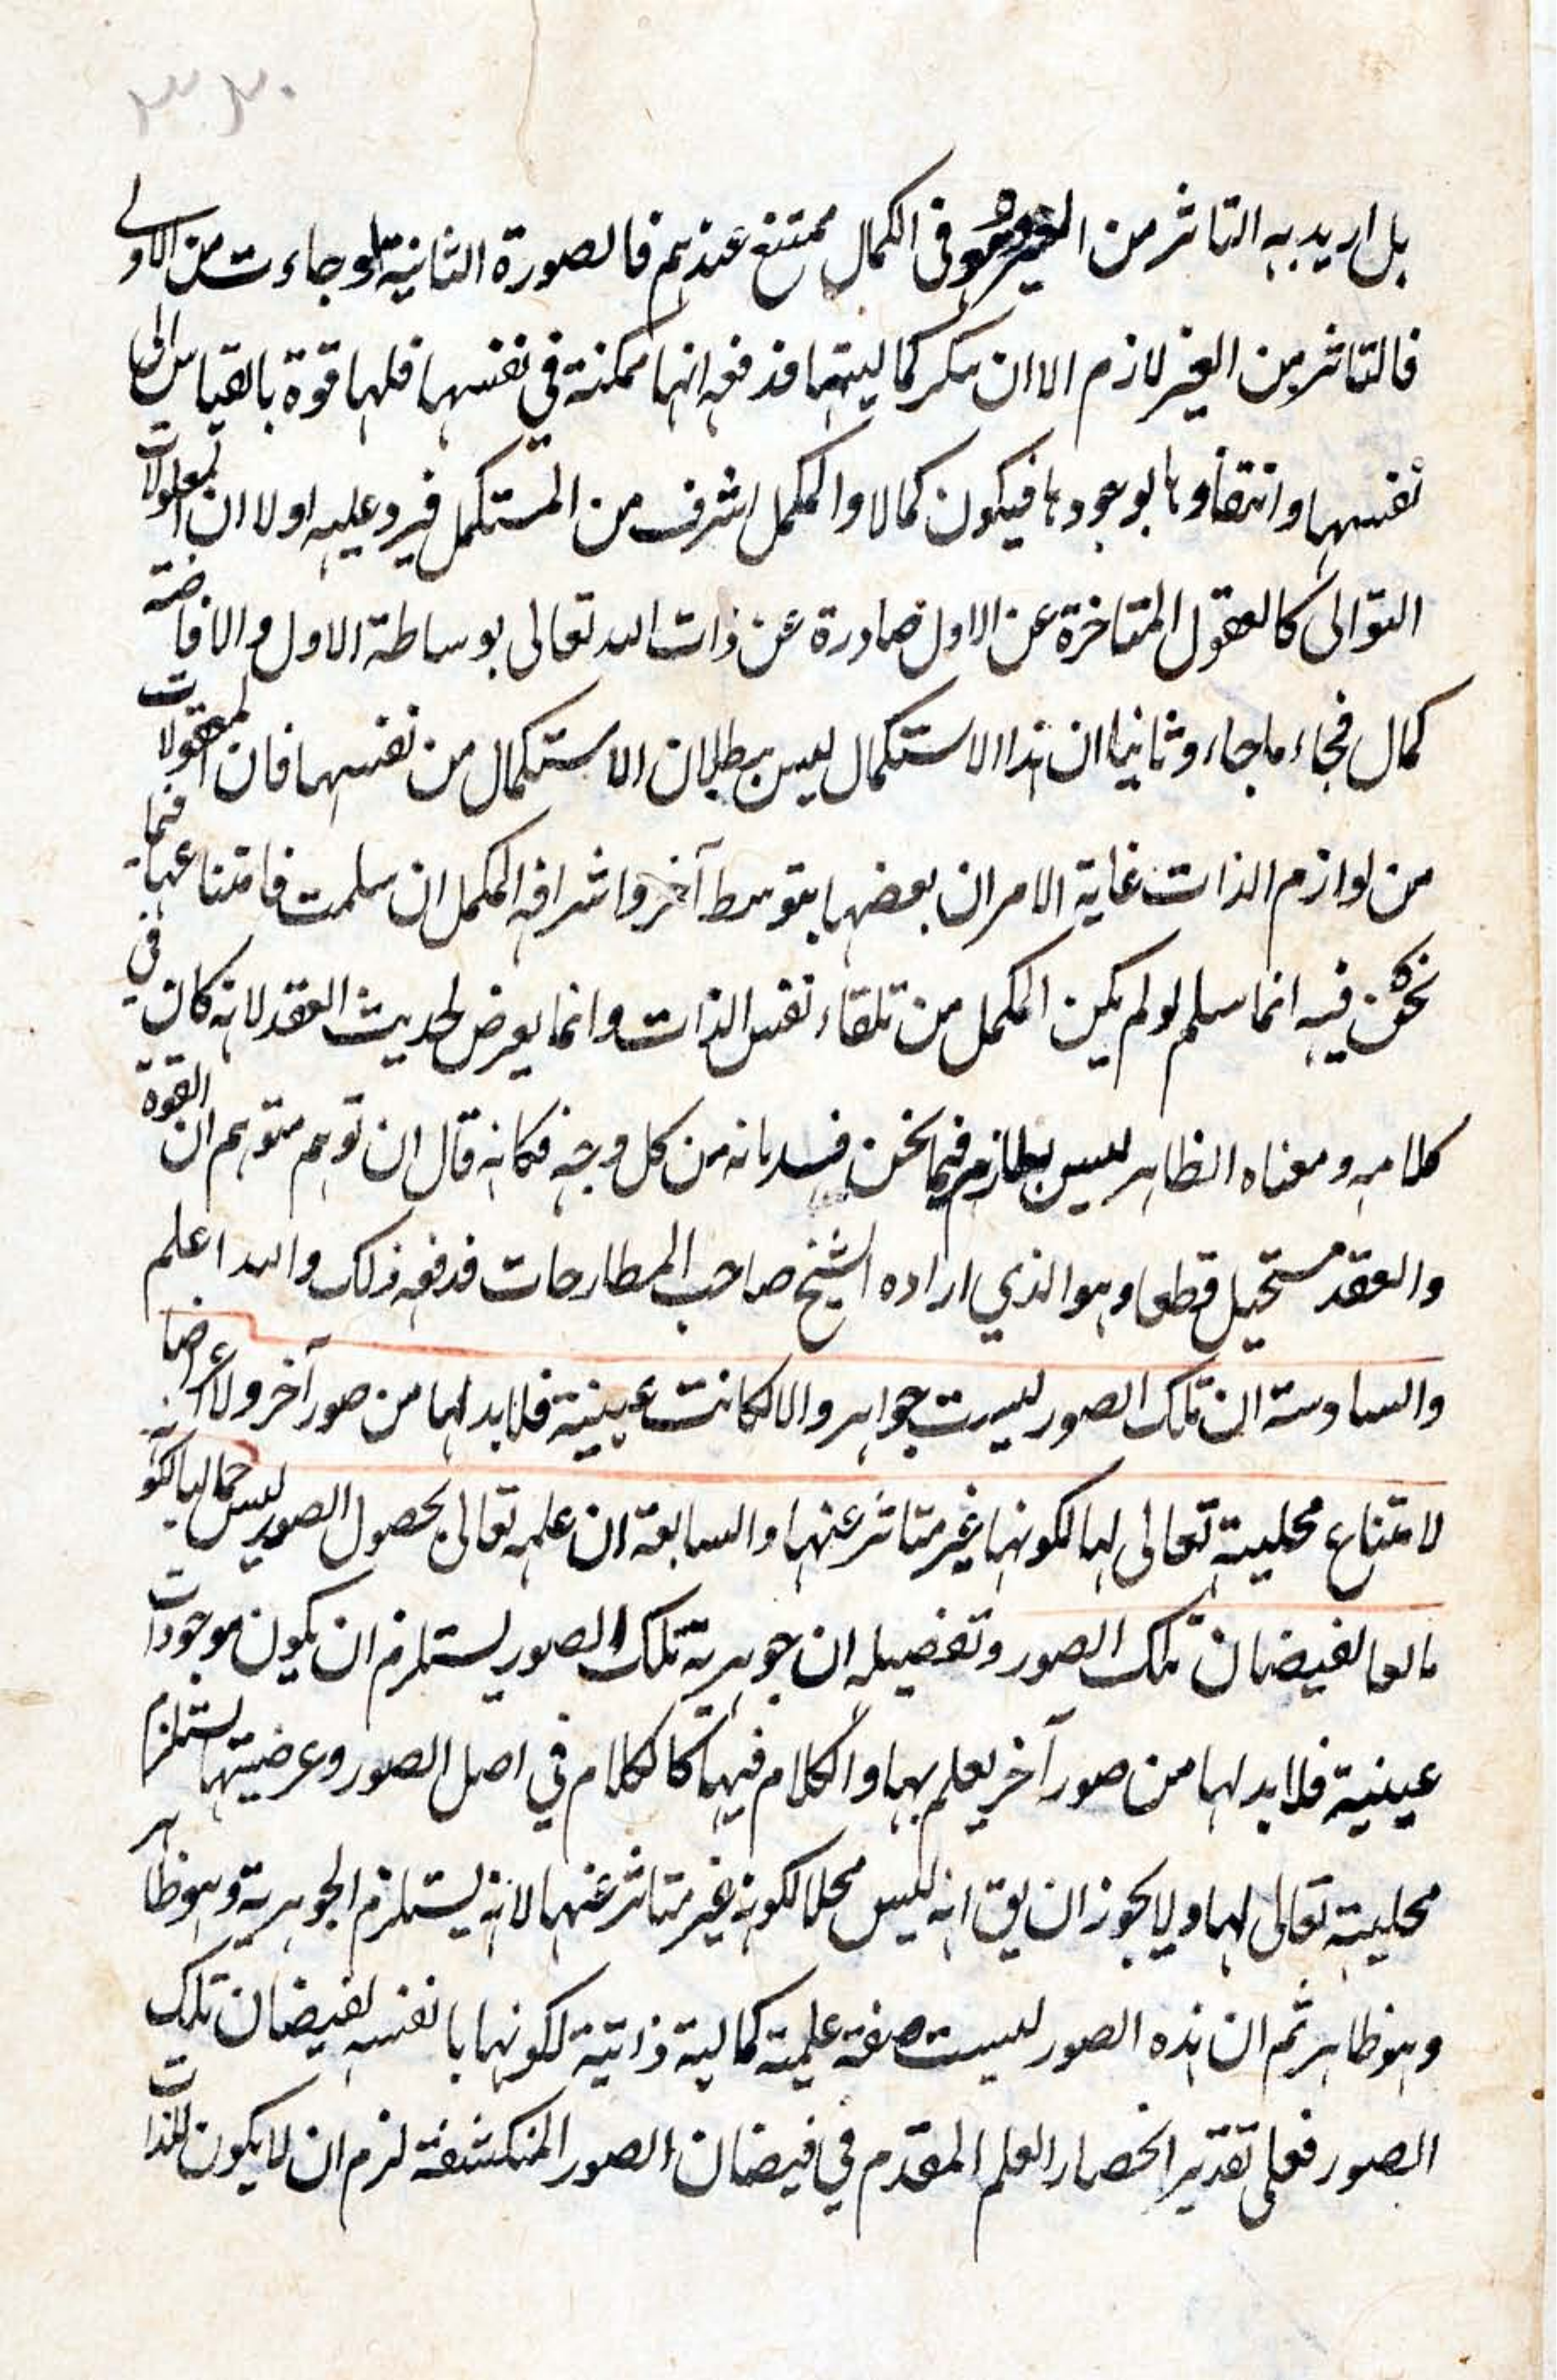 ٣٣٠
بل اريد به التاثر من الغير وهو في الكمال ممتنع عندهم فالصورة الثانية لو جاءت من الاولى
فالتاثر من الغير لازم الا ان ينكر كماليتها فدفعه انها ممكنة في نفسها فلها قوة بالقياس الى
نفسها وانتفاوها بوجودها فيكون كمالا والمكمل اشرف من المستكمل فيرد عليه اولا ان المعلولات
التوالى كالعقول المتاخرة عن الاول صادرة عن ذات الله تعالى بوساطة الاول والافاضة
كمال فجاء ماجاء وثانيا ان هذا الاستكمال ليس ببطلان الاستكمال من نفسها فان المعقولات
من لوازم الذات غاية الامر ان بعضها بتوسط آخر واشرافه المكمل ان سلمت فامتناعها فيما
نحن فيه انما سلم لو لم يكن المكمل من تلقاء نفس الذات وانما يعرض لحديث العقد لانه كان في
كلامه ومعناه الظاهر ليس بلازم فيما نحن فيه من كل وجه فكانه قال ان توهم متوهم ان القوة
والعقد مستحيل قطعا وهو الذي اراده الشيخ صاحب المطارحات فدفعه ذلك والله اعلم
والسادسة ان تلك الصور ليست جواهر والا لكانت عينية فلابد لها من صور آخر ولا اعراضا
لامتناع محليته تعالى لها لكونها غير متاثر عنها والسابعة ان علمه تعالى بحصول الصور ليس كماليا لكونه
تابعا لفيضان تلك الصور وتفصيله ان جوهرية تلك الصور يستلزم ان يكون موجودات
عينية فلابد لها من صور آخر يعلم بها والكلام فيها كالكلام في اصل الصور وعرضيتها يستلزم
محليته تعالى لها ولا يجوز ان يق انه ليس محلا لكونه غير متاثر عنها لانه يستلزم الجوهرية وهو ظاهر
وهو ظاهر ثم ان هذه الصور ليست صفة علمية كمالية ذاتية لكونها بانفسه لفيضان تلك
الصور فعلى تقدير انحصار العلم المقدم في فيضان الصور المنكشفة لزم ان لا يكون للذات